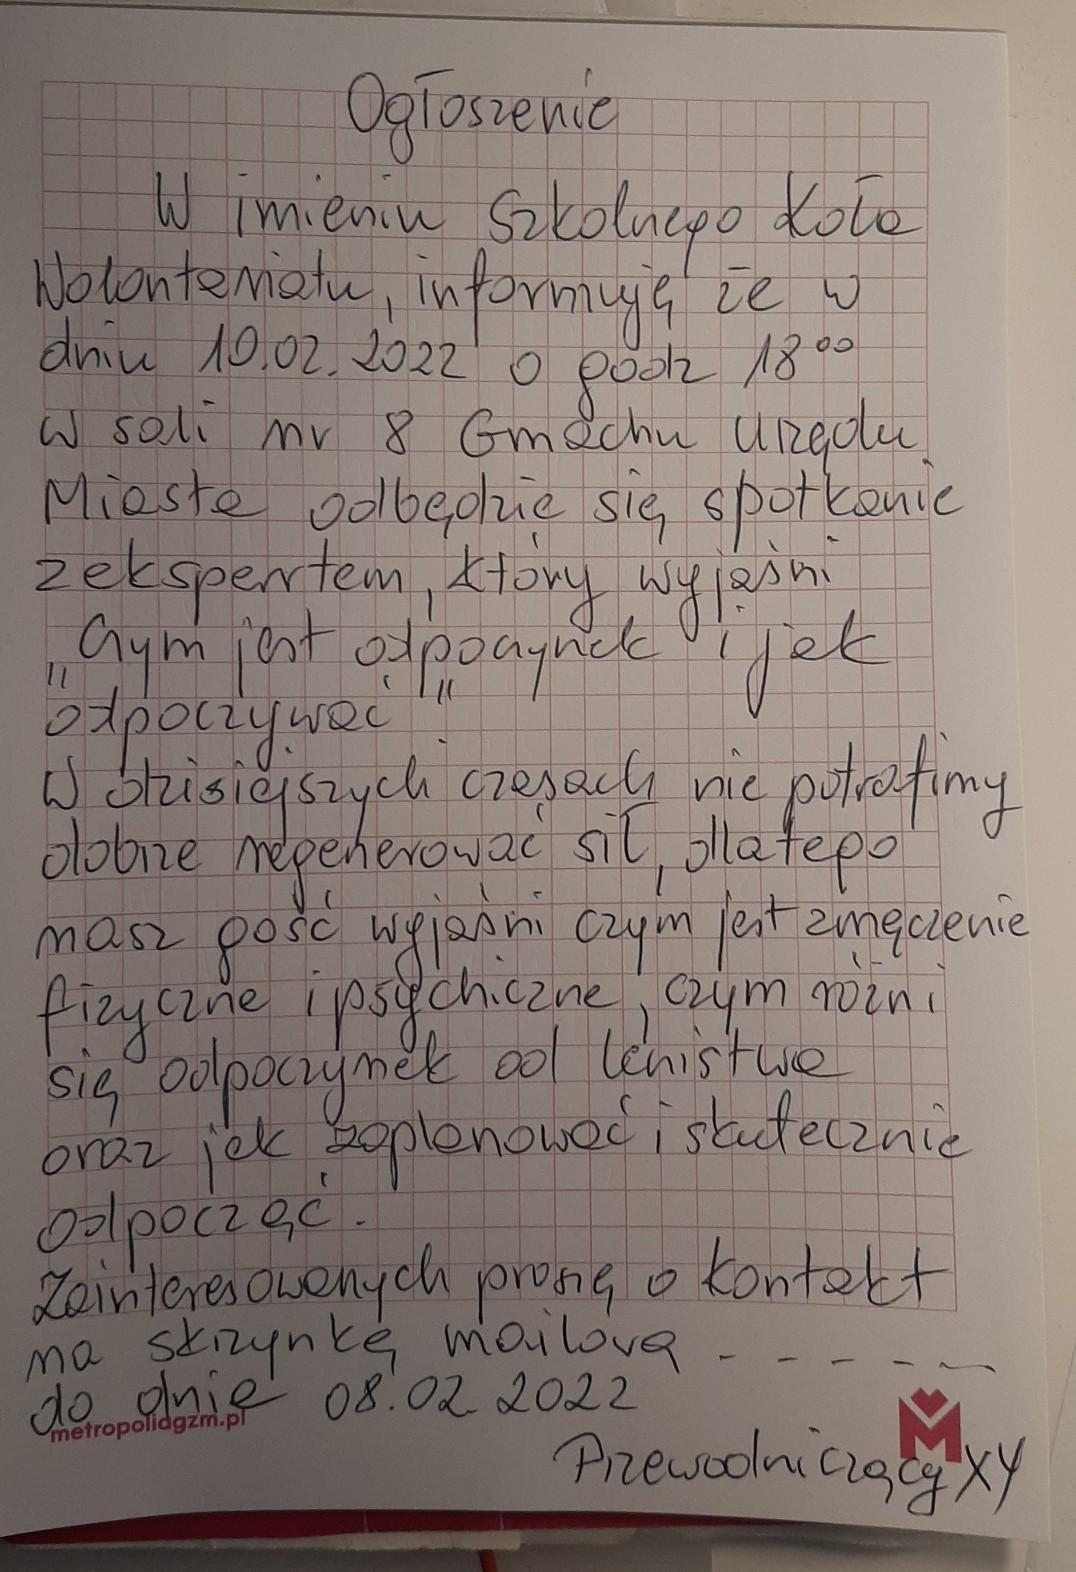 Ogłoszenie
W imieniu Szkolnego Koła
Wolontariatu, informuję że w
dniu 10.02.2022 o godz 18⁰⁰
w sali nr 8 Gmachu Urzędu
Miasta odbędzie się spotkanie
z ekspertem, który wyjaśni
„Czym jest odpoczynek i jak
odpoczywać"
W dzisiejszych czasach nie potrafimy
dobrze regenerować sił, dlatego
nasz gość wyjaśni czym jest zmęczenie
fizyczne i psychiczne, czym różni
się odpoczynek od lenistwa
oraz jak zaplanować i skutecznie
odpocząć.
Zainteresowanych proszę o kontakt
na skrzynkę mailową - - - - - -
do dnia 08.02.2022
metropoliagzm.pl
Przewodniczący XY